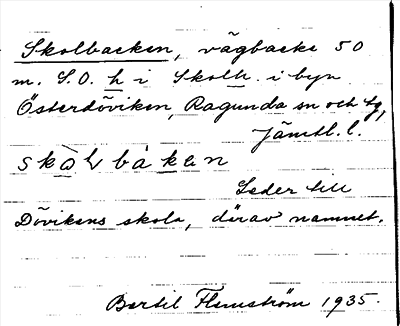 Skolbacken, vägbacke 50
m. S.O. h i Skolb. i byn
Österdöviken, Ragunda sn och tg,
Jämtl. l.
skòlbákan
Leder till
Dövikens skola, därav namnet.
Bertil Flemström 1935.